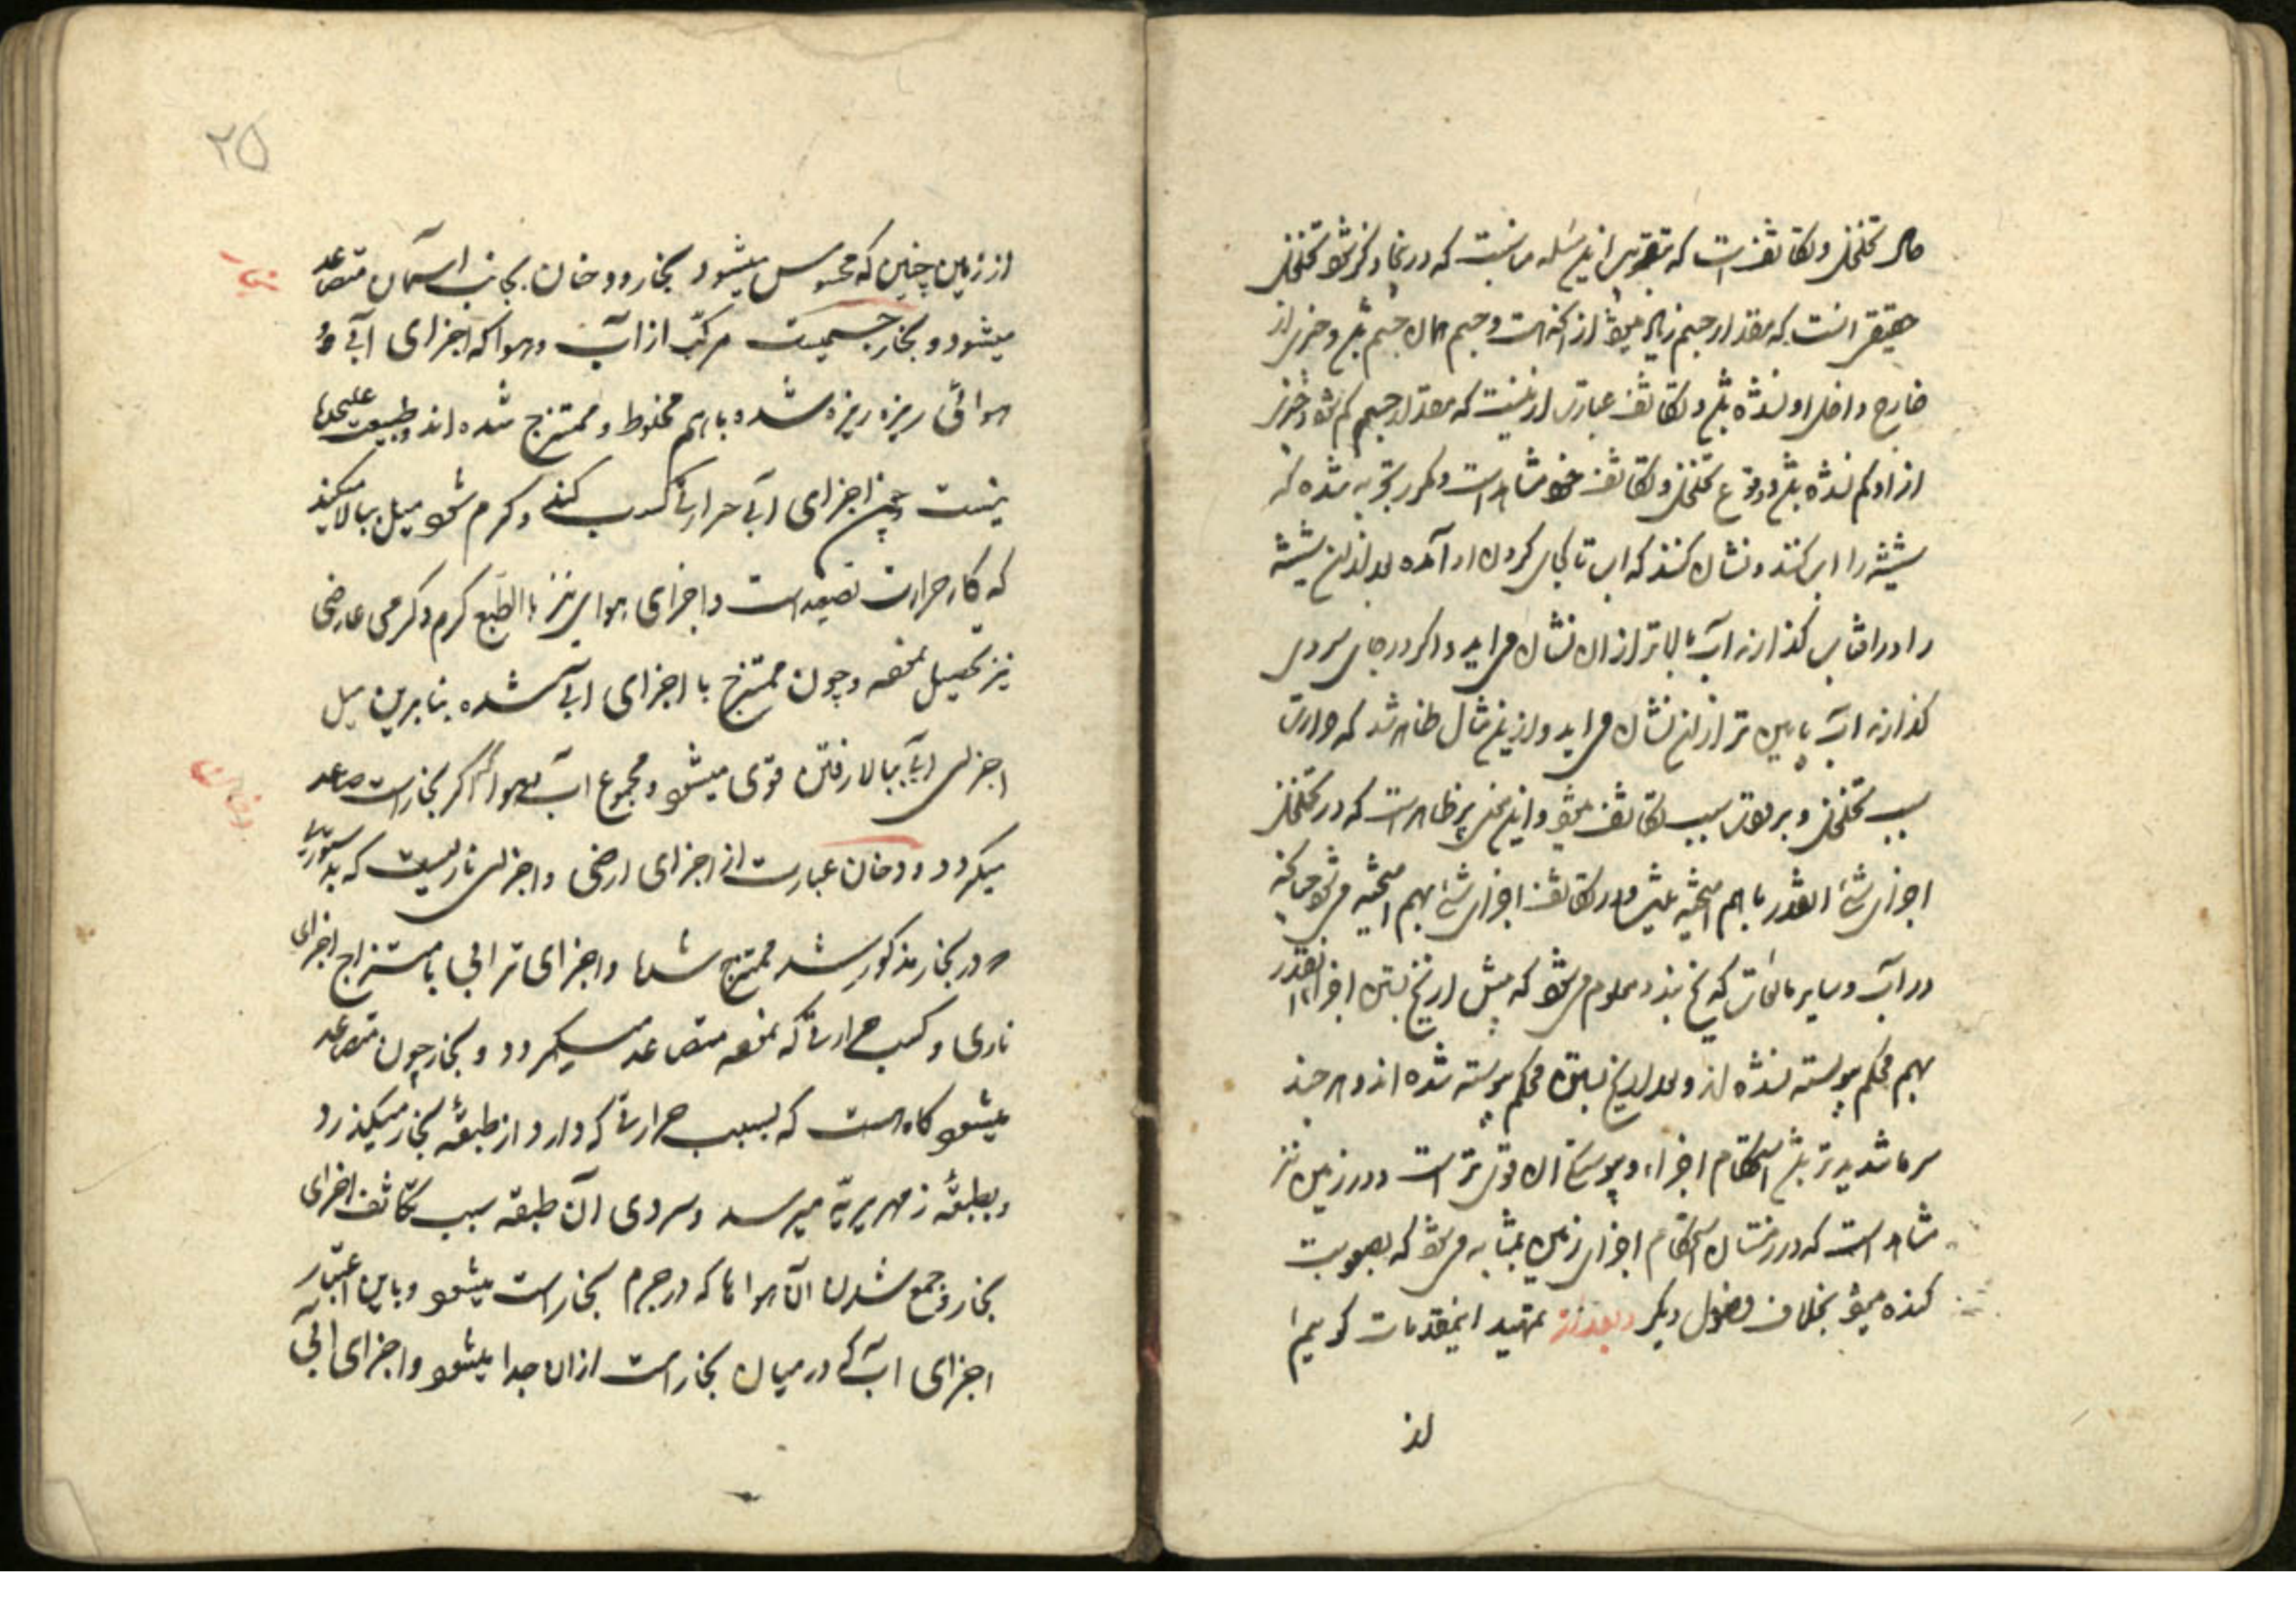 حال تخلخل و تکاثف است که بتقریب این مسئله مناسبت که در اینجا ذکر شود تخلخل
حقیقی آنست که مقدار جسم زیاده میشود از آنکه است و جسم همان جسم باشد و چیزی از
خارج داخل او نشده باشد و تکاثف عبارت ازینست که مقدار جسم کم شود و چیزی
از او کم نشده باشد و وقوع تخلخل و تکاثف خود مشاهد است و مکرر بتجربه شده که
شیشه را آب کنند و نشان کنند که آب تا کجای کردن او آمده بعد از آن شیشه
را در آفتاب گذارند آب بالاتر از آن نشان می آید و اگر در جای سردی
گذارند آب پایین تر از آن نشان می آید و ازین مثال ظاهر شد که حرارت
سبب تخلخل و برودت سبب تکاثف میشود و این معنی نیز ظاهر است که در تخلخل
اجزای شیء آنقدر با هم آمیخته نمیشود و در تکاثف اجزای شیء بهم آمیخته میشود چنانکه
در آب و سایر مایعات که یخ بندد معلوم میشود که پیش از یخ بستن اجزا آنقدر
بهم محکم پیوسته نشده اند و بعد از یخ بستن محکم پیوسته شده اند و هر چند
سرما شدیدتر باشد استحکام اجزاء و پیوستگی آن قوی تر است و در زمین نیز
مشاهد است که در زمستان استحکام اجزای زمین بمثابه میشود که بصعوبت
کنده میشود بخلاف فصول دیگر و بعد از تمهید اینمقدمات گوییم
از
۲۵
از زمین چنین که محسوس میشود بخار و دخان بجانب آسمان متصاعد
بخار
میشود و بخار جسمیست مرکب از آب و هوا که اجزای آبی و
هوائی ریزه ریزه شده با هم مخلوط و ممتزج شده اند و طبیعت علیحده
نیست و چون اجزای آبی حرارتی کسب کند و گرم شود میل ببالا میکند
که کار حرارت تصعید است و اجزای هوایی نیز بالطبع گرم و گرمی عارضی
نیز تحصیل نموده و چون ممتزج با اجزای آبی شده بنابرین میل
اجزای آبی ببالا رفتن قوی میشود و مجموع آب و هوا که بخار است صاعد
دخان
میگردد و دخان عبارت از اجزای ارضی و اجزای ناریست که بدستوری
که در بخار مذکور شد ممتزج شده و اجزای ترابی بامتزاج اجزای
ناری و کسب حرارتی که نموده متصاعد میگردد و بخار چون متصاعد
میشود گاه است که بسبب حرارتی که دارد از طبقهٔ بخار میگذرد
و بطبقهٔ زمهریریه میرسد و سردی آن طبقه سبب تکاثف اجزای
بخار و جمع شدن آن هواها که در جرم بخار است میشود و باین اعتبار
اجزای آب که در میان بخار است از آن جدا میشود و اجزای آبی